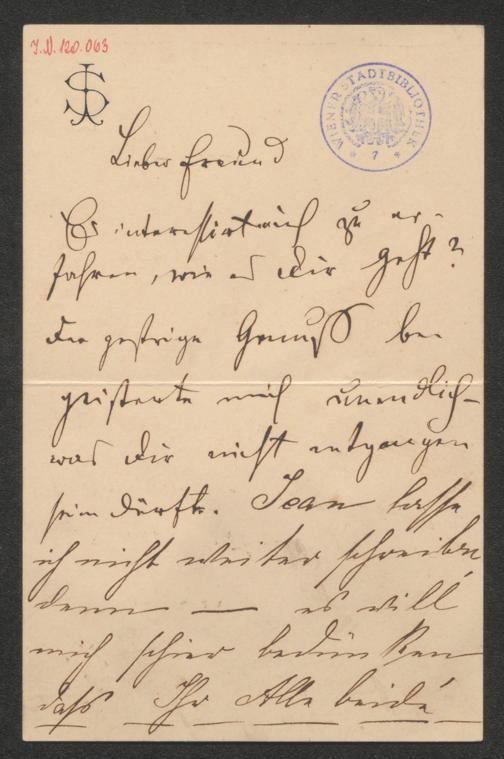 J.N. 120.063
JS
WIENER STADTBIBLIOTHEK
* 7 *
Lieber Freund
Es interessirt mich zu er-
fahren, wie es Dir geht?
Der gestrige Genuss be
geisterte mich unendlich –
was Dir nicht entgangen
sein dürfte. Jean lasse
ich nicht weiter schreiben
denn — es will
mich schier bedünken
dass Ihr Alle beide